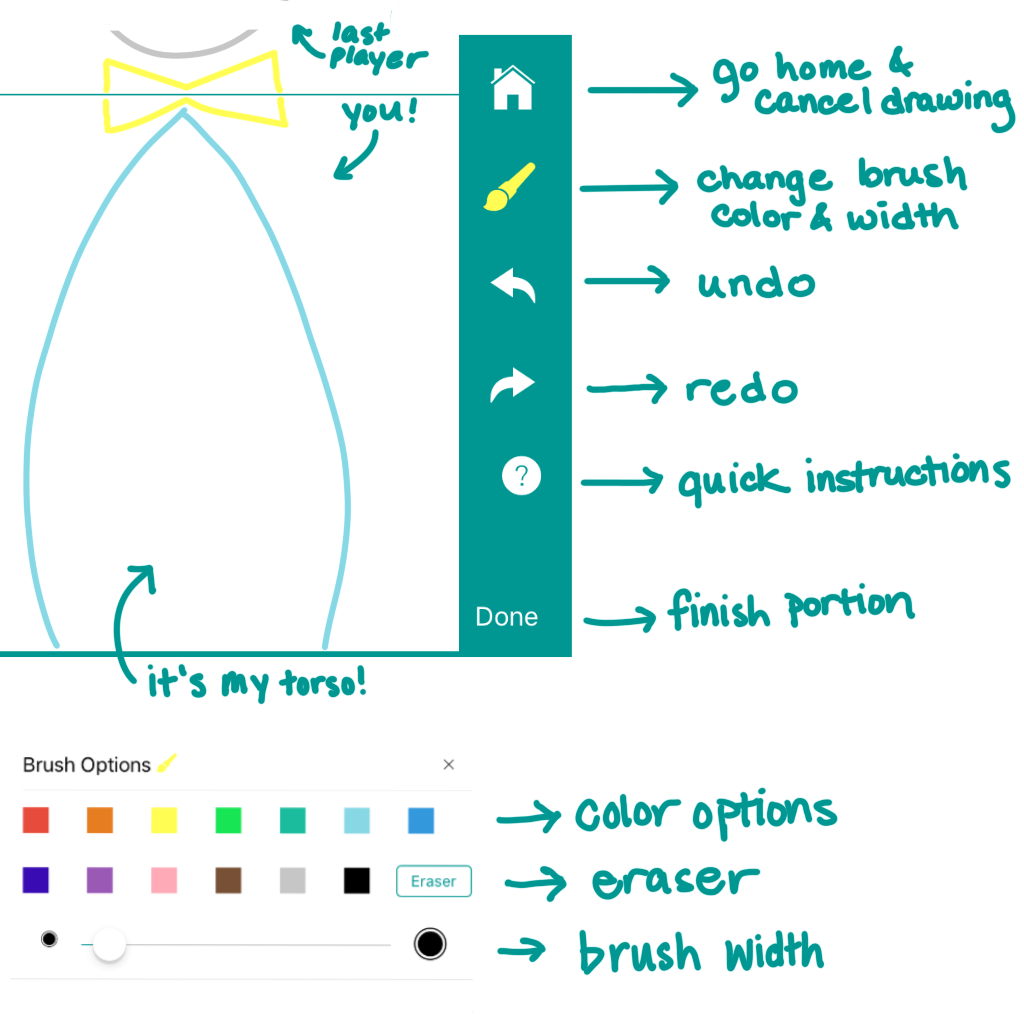 last
player
you!
go home &
cancel drawing
change brush
color & width
undo
redo
?
quick instructions
Done
finish portion
it's my torso!
Brush Options
×
color options
Eraser
eraser
brush width